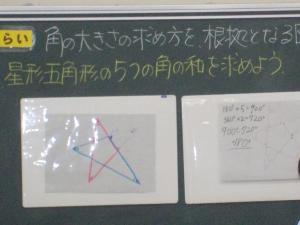 らい
角の大きさの求め方を、根拠となる
星形五角形の5つの角の和を求めよう
180°×5=900°
360°×2=720°
900°-720°
=180°